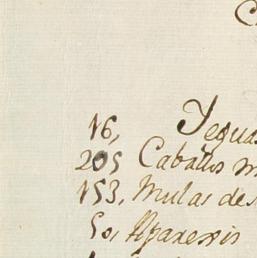 16, Yeguas
205 Caballos m
153, Mulas de
50, Aparexos